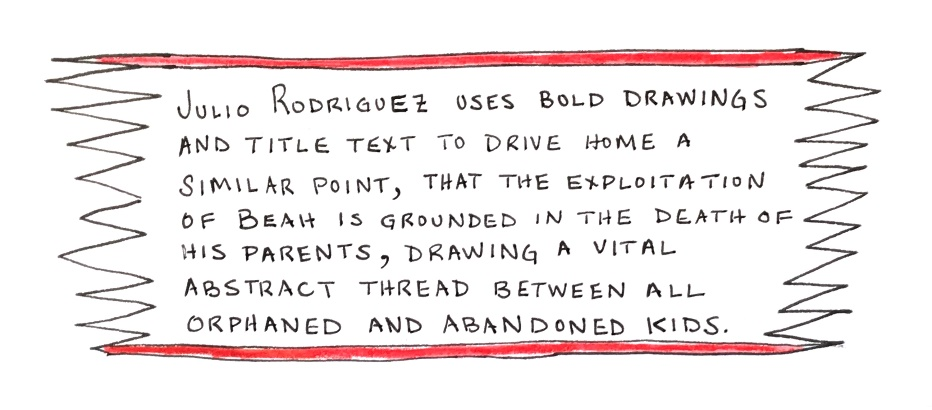 Julio Rodriguez uses bold drawings
and title text to drive home a
similar point, that the exploitation
of Beah is grounded in the death of
his parents, drawing a vital
abstract thread between all
orphaned and abandoned kids.